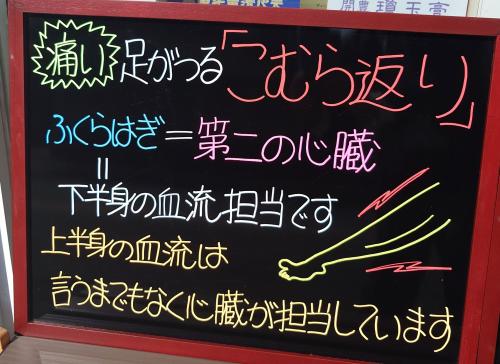 痛い 足がつる「こむら返り」
ふくらはぎ=第二の心臓
=
下半身の血流担当です
上半身の血流は
言うまでもなく心臓が担当しています